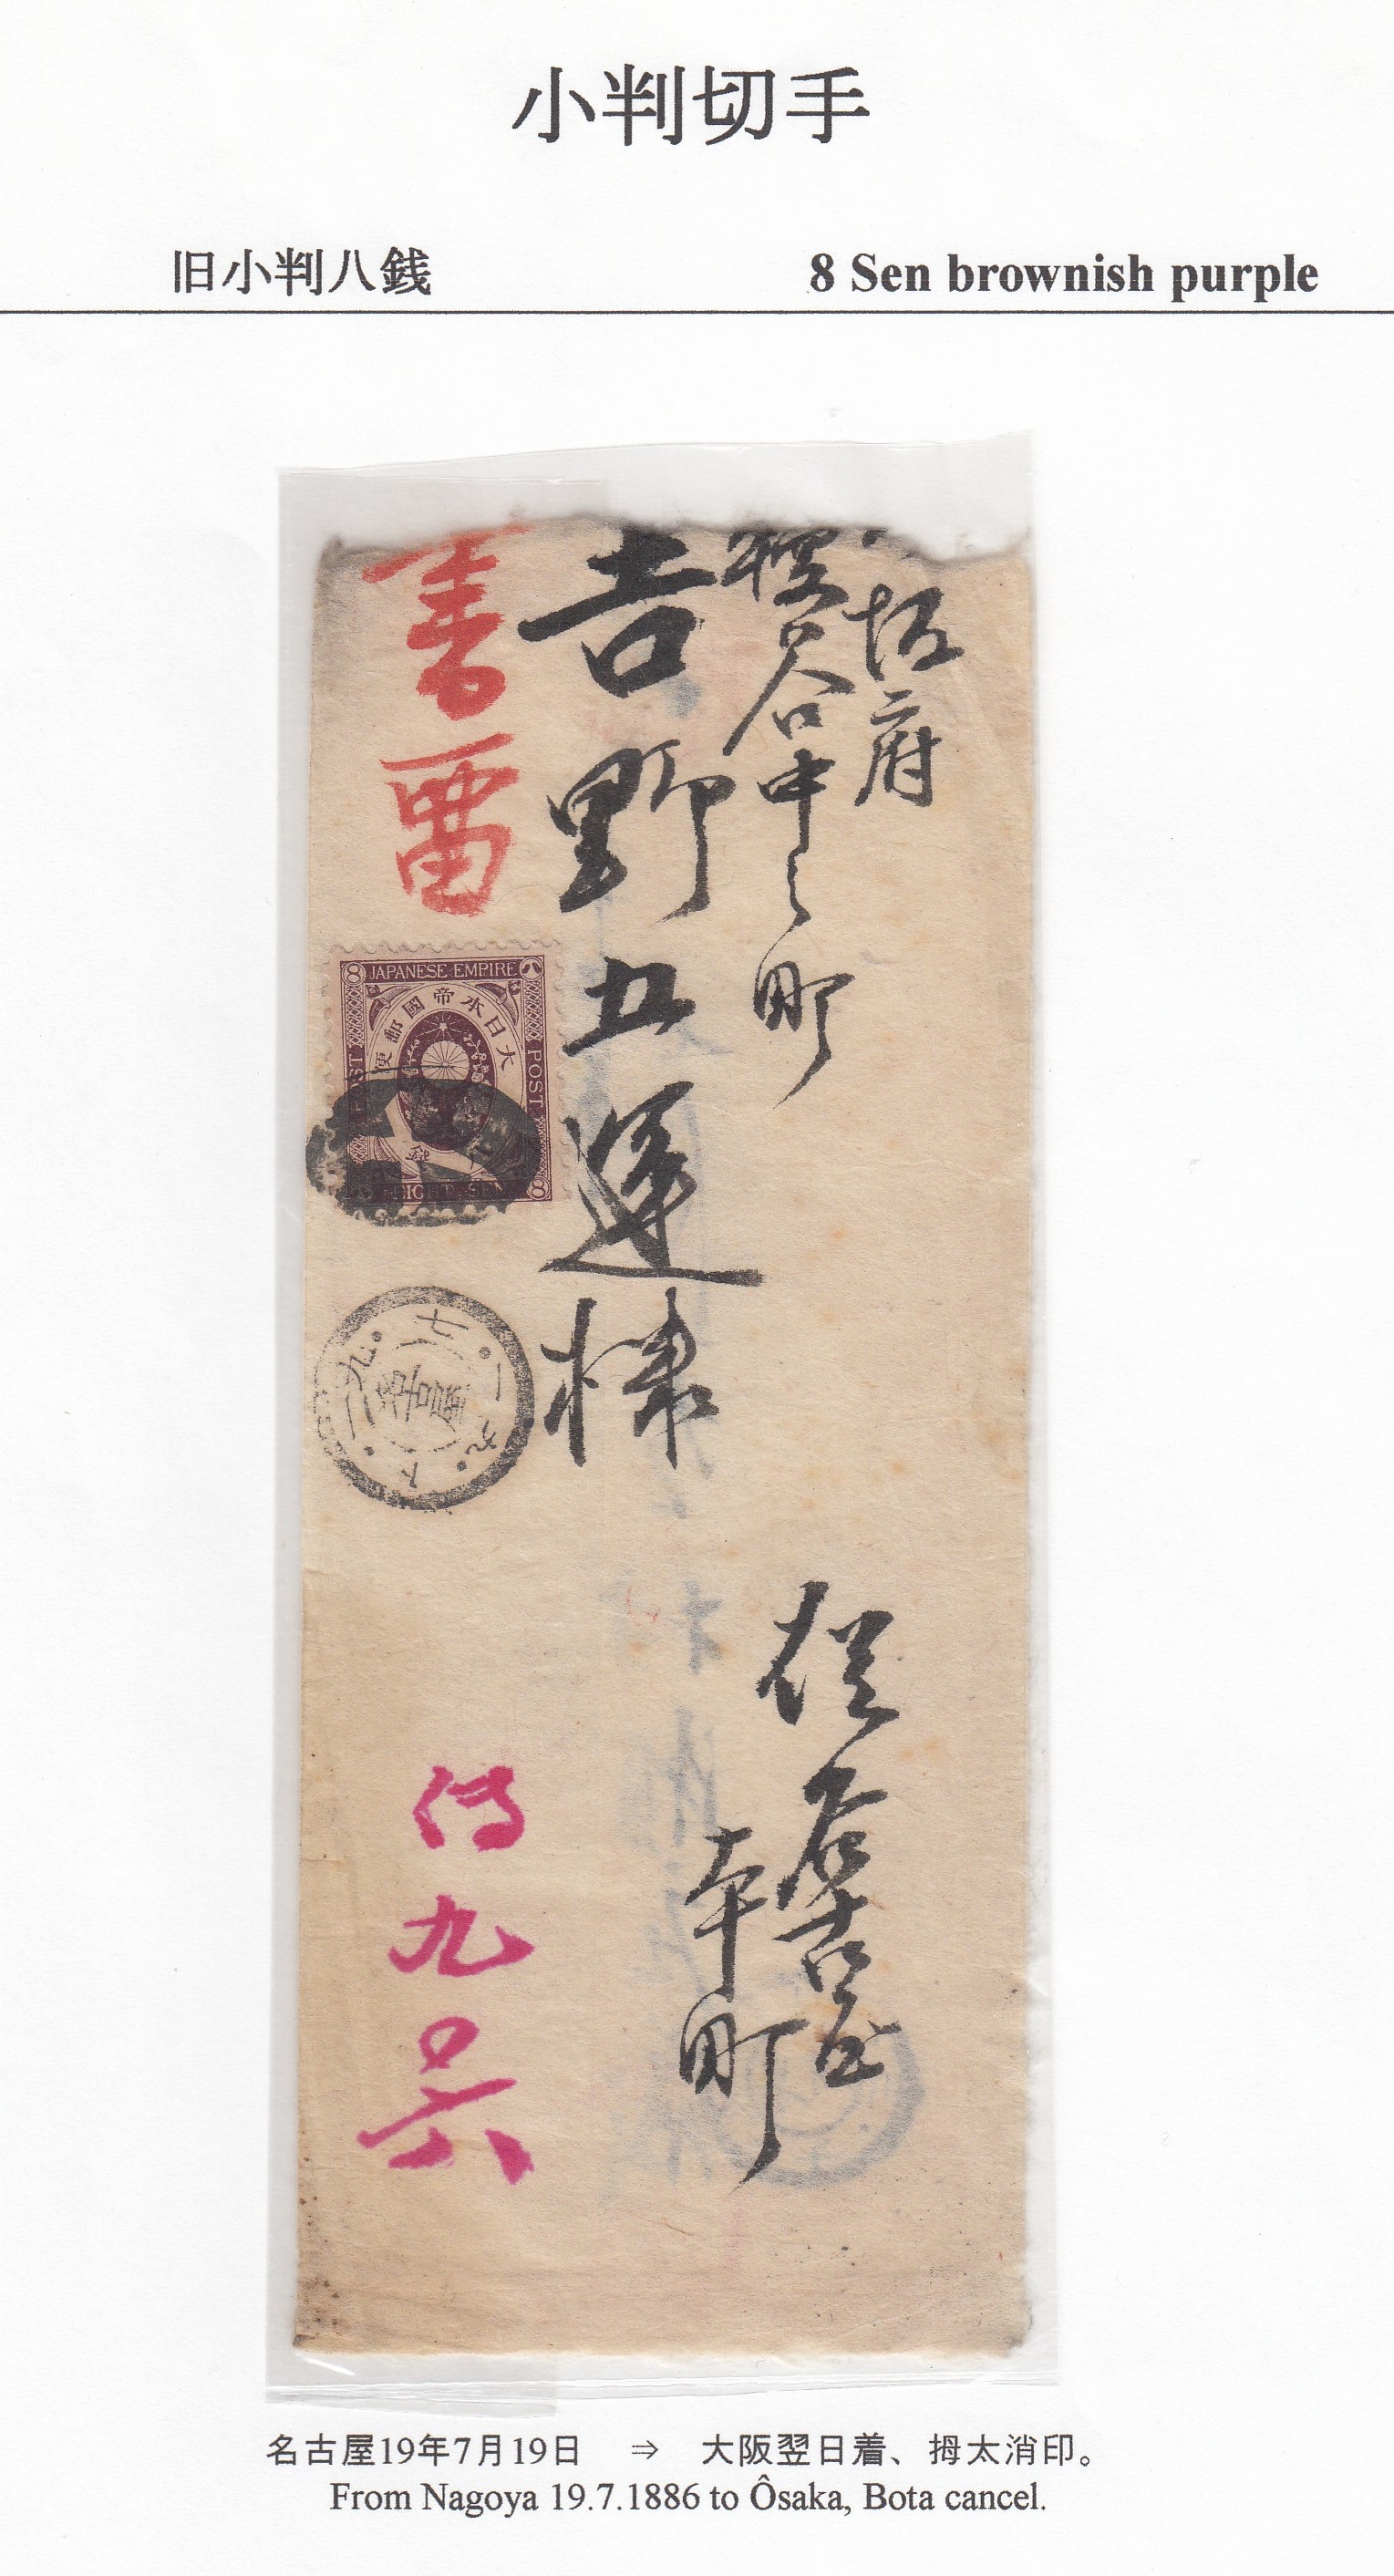 小判切手
旧小判八銭
8 Sen brownish purple
阪府
谷中之町
吉野五運様
書留
JAPANESE EMPIRE
大日本帝國郵便
POST
POST
8
八
EIGHT SEN
8
名古屋
一九・七・一九・下
従名古屋
本町
九〇六
名古屋19年7月19日 ⇒ 大阪翌日着、拇太消印。
From Nagoya 19.7.1886 to Ôsaka, Bota cancel.